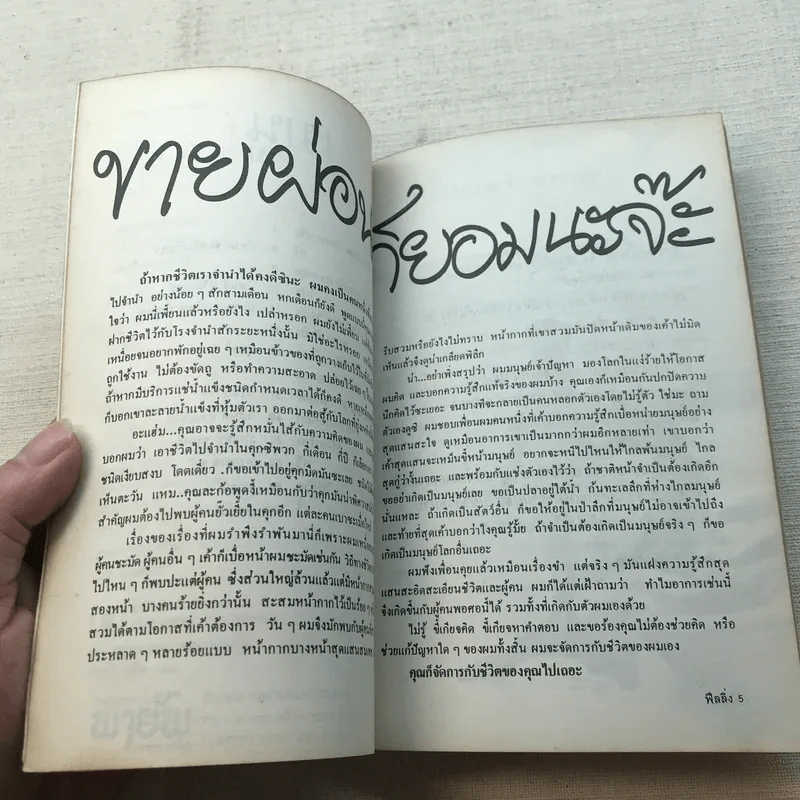 ขายผ่อน
ก็ยอมนะจ๊ะ
ถ้าหากชีวิตเราจำนำได้คงดีซินะ ผมคงเป็นคนหนึ่ง
ไปจำนำ อย่างน้อย ๆ สักสามเดือน หกเดือนก็ยังดี
ใจว่า ผมนี่เพี้ยนแล้วหรือยังไง เปล่าหรอก ผมยังไม่เพี้ยน
ฝากชีวิตไว้กับโรงจำนำสักระยะหนึ่งนั้น มิใช่อะไรหรอก
เหนื่อยจนอยากพักอยู่เฉย ๆ เหมือนข้าวของที่ถูกวางเก็บไว้
ถูกใช้งาน ไม่ต้องขัดถู หรือทำความสะอาด ปล่อยไว้เฉย ๆ
ถ้าหากมีบริการแช่น้ำแข็งชนิดกำหนดเวลาได้ก็คงดี
ก็บอกเขาละลายน้ำแข็งที่หุ้มตัวเรา ออกมาต่อสู้กับโลกที่
อะแฮ่ม...คุณอาจจะรู้สึกหมั่นไส้กับความคิดของผม
บอกผมว่า เอาชีวิตไปจำนำในคุกซิพวก กี่เดือน กี่ปี ก็
ชนิดเงียบสงบ โดดเดี่ยว ก็ขอเข้าไปอยู่คุกมืดมันซะเลย
เห็นตะวัน แหม...คุณละก้อพูดงี้เหมือนกับว่าคุกมันน่า
สำคัญผมต้องไปพบผู้คนยั้วเยี้ยในคุกอีก แต่ละคนเบาซะเมื่อไหร่
เรื่องของเรื่องที่ผมรำพึงรำพันมานี่ก็เพราะผม
ผู้คนชะมัด ผู้คนอื่น ๆ เค้าก็เบื่อหน้าผมชะมัดเช่นกัน
ไปไหน ๆ ก็พบปะแต่ผู้คน ซึ่งส่วนใหญ่ล้วนแล้วแต่มีหน้ากาก
สองหน้า บางคนร้ายยิ่งกว่านั้น สะสมหน้ากากไว้เป็นร้อย ๆ
สวมได้ตามโอกาสที่เค้าต้องการ วัน ๆ ผมจึงมักพบกับผู้คน
ประหลาด ๆ หลายร้อยแบบ หน้ากากบางหน้าสุดแสน
รีบสวมหรือยังไงไม่ทราบ หน้ากากที่เขาสวมมันปิดหน้าเดิมของเค้าไม่มิด
เห็นแล้วจึงดูน่าเกลียดพิลึก
น่า...อย่าเพิ่งสรุปว่า ผมมนุษย์เจ้าปัญหา มองโลกในแง่ร้ายให้โอกาส
ผมคิด และบอกความรู้สึกแท้จริงของผมบ้าง คุณเองก็เหมือนกันปกปิดความ
นึกคิดไว้ซะเยอะ จนบางทีจะกลายเป็นคนหลอกตัวเองโดยไม่รู้ตัว ใช่มะ ถาม
ตัวเองดูซิ ผมชอบเพื่อนผมคนหนึ่งที่เค้าบอกความรู้สึกเบื่อหน่ายมนุษย์อย่าง
สุดแสนสะใจ ดูเหมือนอาการเขาเป็นมากกว่าผมอีกหลายเท่า เขาบอกว่า
เค้าสุดแสนจะเหม็นขี้หน้ามนุษย์ อยากจะหนีไปไหนให้ไกลพ้นมนุษย์ ไกล
สุดกู่ว่างั้นเถอะ และพร้อมกับแช่งตัวเองไว้ว่า ถ้าชาติหน้าจำเป็นต้องเกิดอีก
ขออย่าเกิดเป็นมนุษย์เลย ขอเป็นปลาอยู่ใต้น้ำ ก้นทะเลลึกที่ห่างไกลมนุษย์
นั่นแหละ ถ้าเกิดเป็นสัตว์อื่น ก็ขอให้อยู่ในป่าลึกที่มนุษย์ไม่อาจเข้าไปถึง
และท้ายที่สุดเค้าบอกว่าไงคุณรู้มั้ย ถ้าจำเป็นต้องเกิดเป็นมนุษย์จริง ๆ ก็ขอ
เกิดเป็นมนุษย์โลกอื่นเถอะ
ผมฟังเพื่อนคุยแล้วเหมือนเรื่องขำ แต่จริง ๆ มันแฝงความรู้สึกสุด
แสนสะอิดสะเอียนชีวิตและผู้คน ผมก็ได้แต่เฝ้าถามว่า ทำไมอาการเช่นนี้
จึงเกิดขึ้นกับผู้คนพอศอนี้ได้ รวมทั้งที่เกิดกับตัวผมเองด้วย
ไม่รู้ ขี้เกียจคิด ขี้เกียจหาคำตอบ และขอร้องคุณไม่ต้องช่วยคิด หรือ
ช่วยแก้ปัญหาใด ๆ ของผมทั้งสิ้น ผมจะจัดการกับชีวิตของผมเอง
คุณก็จัดการกับชีวิตของคุณไปเถอะ
ฟิลลิ่ง 5